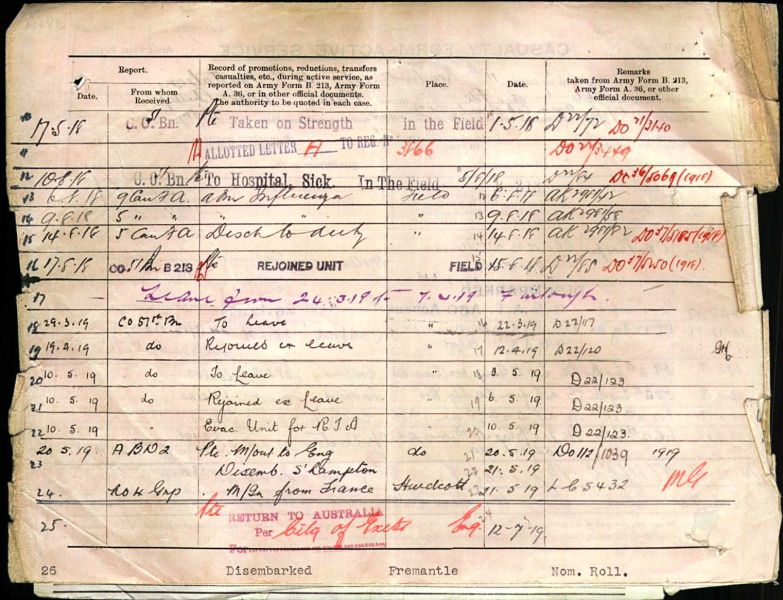 Report.
Record of promotions, reductions, transfers
casualties, etc., during active service, as
reported on Army Form B. 213, Army Form
A. 36, or in other official documents.
The authority to be quoted in each case.
Place.
Date.
Remarks
taken from Army Form B. 213,
Army Form A. 36, or other
official documents.
Date.
From whom
Received
17.5.18 C.O. Bn. Pte Taken on Strength in the Field 1.5.18 D22/72 DO 21/3140
ALLOTTED LETTER A TO REG. No 3866 DO 22/3449
12 10.8.18 C.O. Bn. To Hospital Sick. In The Field 8/8/18
13 Influenza Field 6.8.18
14 9.8.18 5 " " " 9.8.18
15 14.8.18 5 Disch to duty " 14.8.18
16 17.8.18 CO 51 Bn B 213 Pte REJOINED UNIT FIELD 15.8.18 D22/85
17 Leave from 24.3.19 to 7.4.19 Furlough.
18 29.3.19 CO 51st Bn To Leave " 22.3.19 D22/117
19 19.4.19 do Rejoined ex leave " 12.4.19 D22/120
20 10.5.19 do To Leave " 3.5.19 D22/123
21 10.5.19 do Rejoined ex Leave " 6.5.19 D22/123.
22 10.5.19 - Evac Unit for R.T.A " 10.5.19 D22/123.
20.5.19 ABD2 Pte. M/out to Eng do 20.5.19 Do112/1039 1919
23 Disemb. S'Hampton 21.5.19
24. No 4 Grp. M/In from France Hurdcott 21.5.19 LC 5432
25. Pte RETURN TO AUSTRALIA
Per City of Exeter Eng 12-7-19.
26 Disembarked Fremantle Nom. Roll.